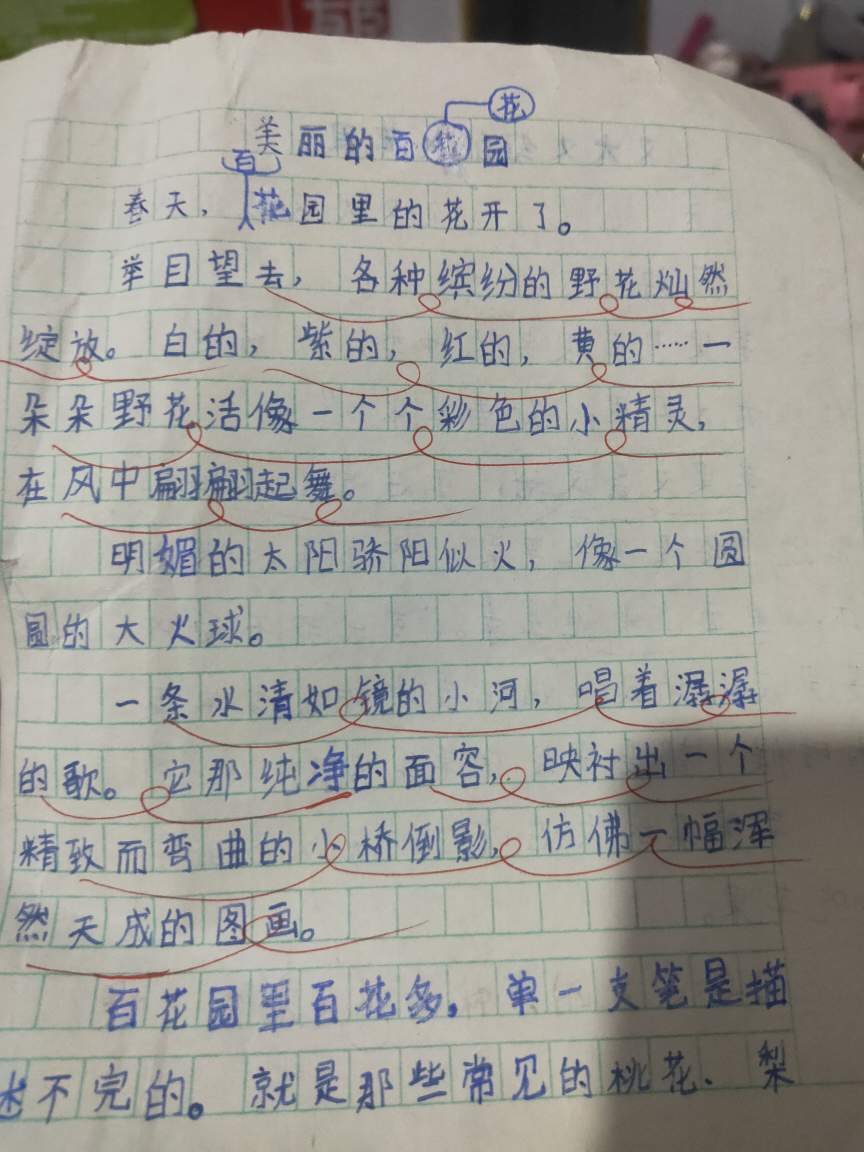 花
美丽的百园
百
春天，花园里的花开了。
举目望去，各种缤纷的野花灿然
绽放。白的，紫的，红的，黄的……一
朵朵野花活像一个个彩色的小精灵，
在风中翩翩起舞。
明媚的太阳骄阳似火，像一个圆
圆的大火球。
一条水清如镜的小河，唱着潺潺
的歌。它那纯净的面容，映衬出一个
精致而弯曲的小桥倒影，仿佛一幅浑
然天成的图画。
百花园里百花多，单一支笔是描
述不完的。就是那些常见的桃花、梨